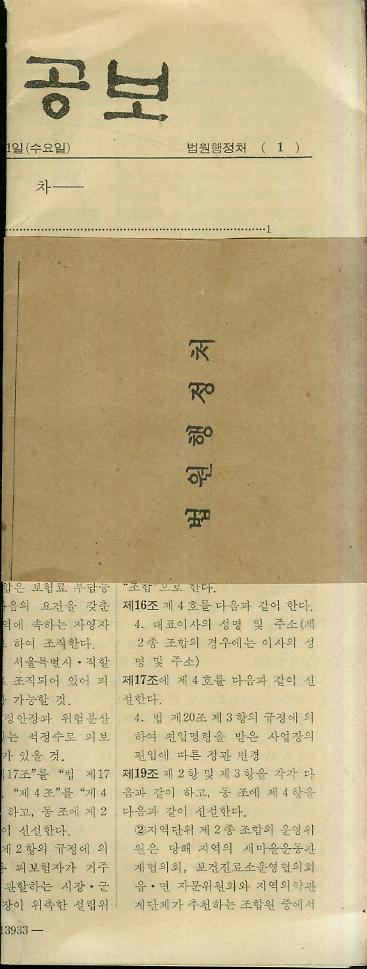 공보
1일(수요일) 법원행정처 ( 1 )
차——
1
법원행정처
합은 보험료 부담능
음의 요건을 갖춘
역에 속하는 자영자
하여 조직한다.
서울특별시·직할
조직되어 있어 피
가능할 것.
정안정과 위험분산
는 적정수로 피보
가 있을 것.
17조”를 “법 제17
“제4조”를 “제4
하고, 동 조에 제2
이 신설한다.
제2항의 규정에 의
피보험자가 거주
관할하는 시장·군
장이 위촉한 설립위
“조합”으로 한다.
제16조 제4호를 다음과 같이 한다.
4. 대표이사의 성명 및 주소(제
2종 조합의 경우에는 이사의 성
명 및 주소)
제17조에 제4호를 다음과 같이 신
설한다.
4. 법 제20조 제3항의 규정에 의
하여 편입명령을 받은 사업장의
편입에 따른 정관 변경
제19조 제2항 및 제3항을 각각 다
음과 같이 하고, 동 조에 제4항을
다음과 같이 신설한다.
②지역단위 제2종 조합의 운영위
원은 당해 지역의 새마을운동관
계협의회, 보건진료소운영협의회
읍·면 자문위원회와 지역의약관
계단체가 추천하는 조합원 중에서
13933 —